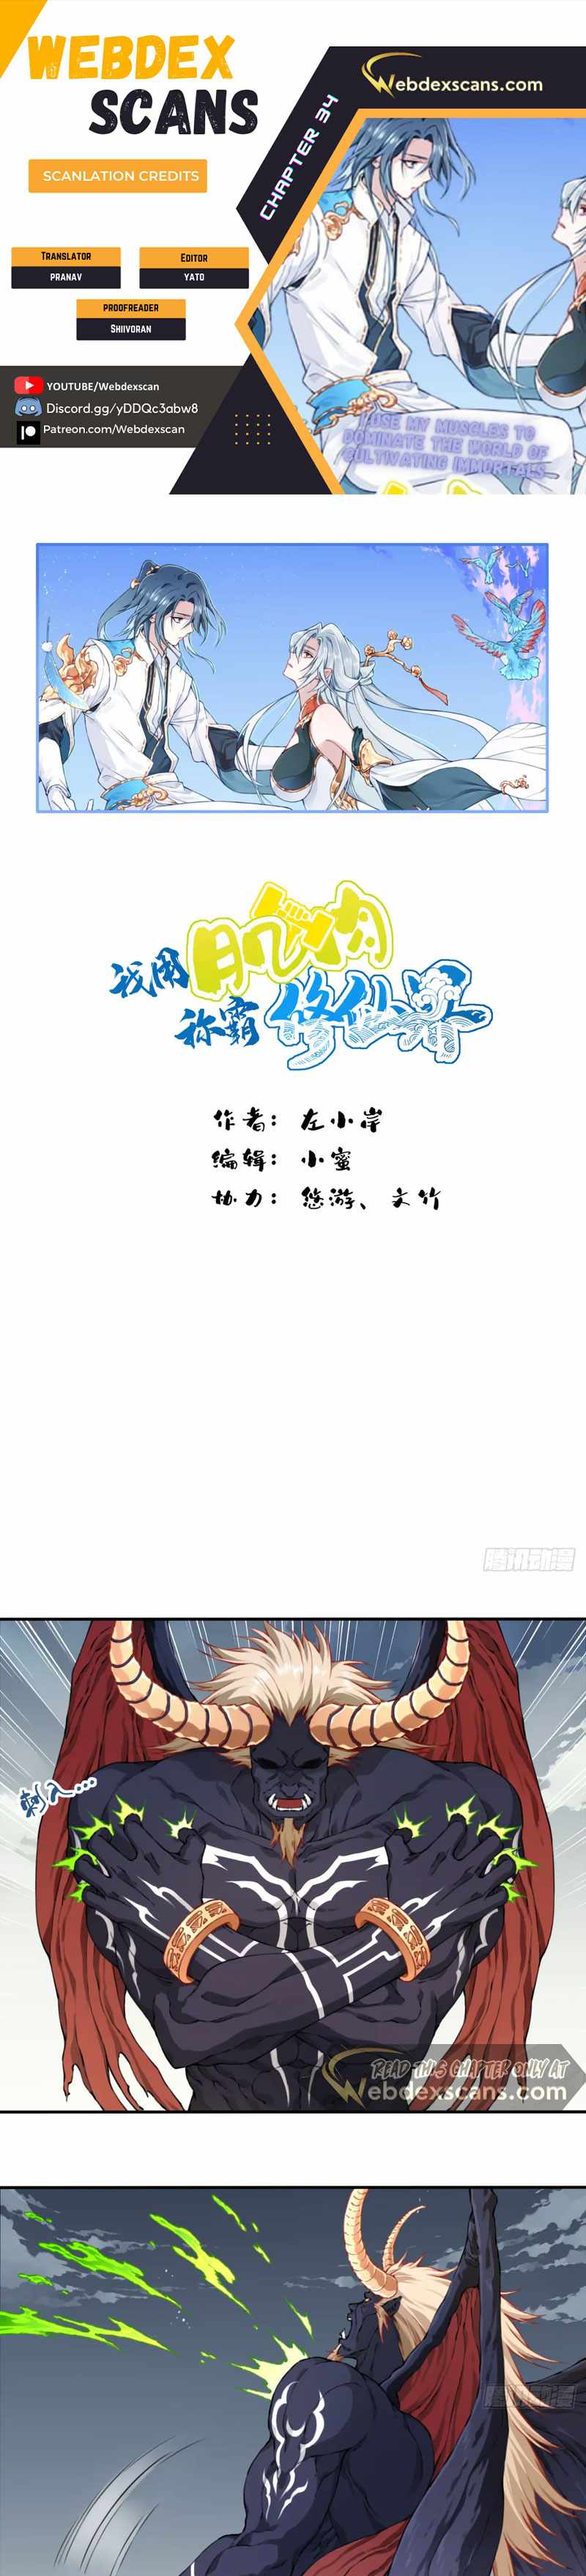 WEBDEX
SCANS
Webdexscans.com
CHAPTER 34
SCANLATION CREDITS
TRANSLATOR
PRANAV
EDITOR
YATO
PROOFREADER
SHIIVORAN
YOUTUBE/Webdexscan
Discord.gg/yDDQc3abw8
Patreon.com/Webdexscan
I USE MY MUSCLES TO
DOMINATE THE WORLD OF
CULTIVATING IMMORTALS
我用肌肉
称霸修仙界
作者：左小岸
编辑：小蜜
协力：悠游、文竹
腾讯动漫
刺入...
READ THIS CHAPTER ONLY AT
Webdexscans.com
腾讯动漫